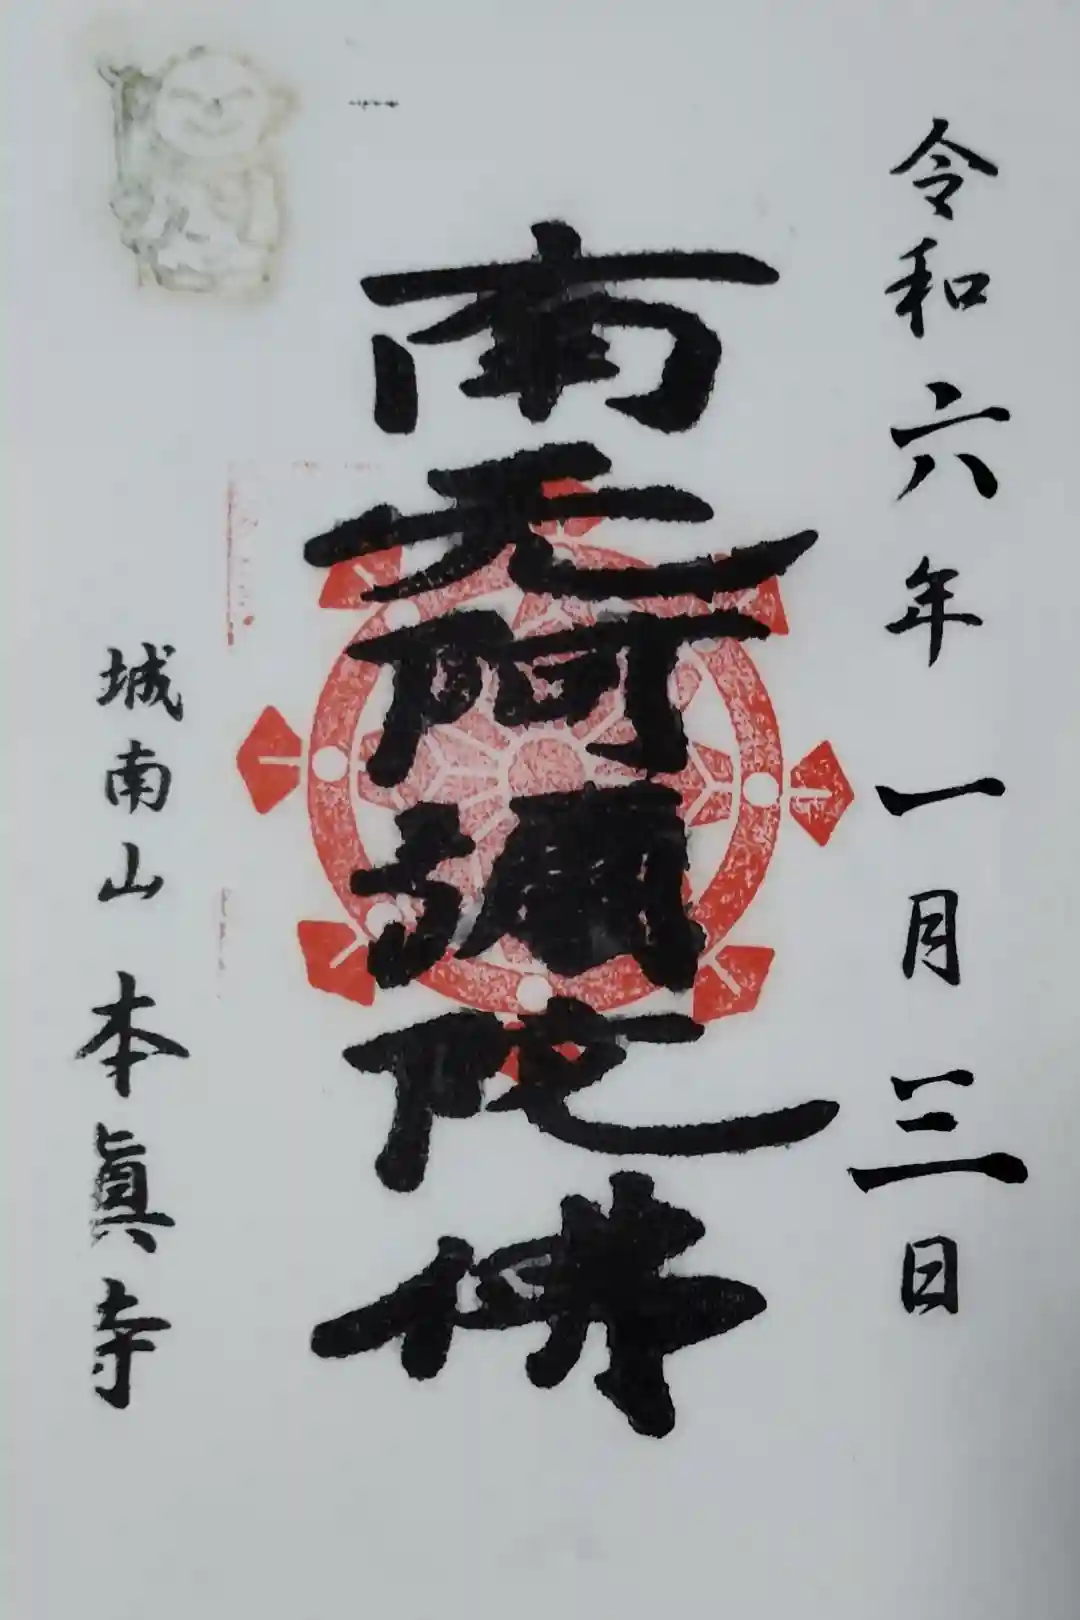 令和六年一月三日
南无阿彌陀佛
城南山本眞寺